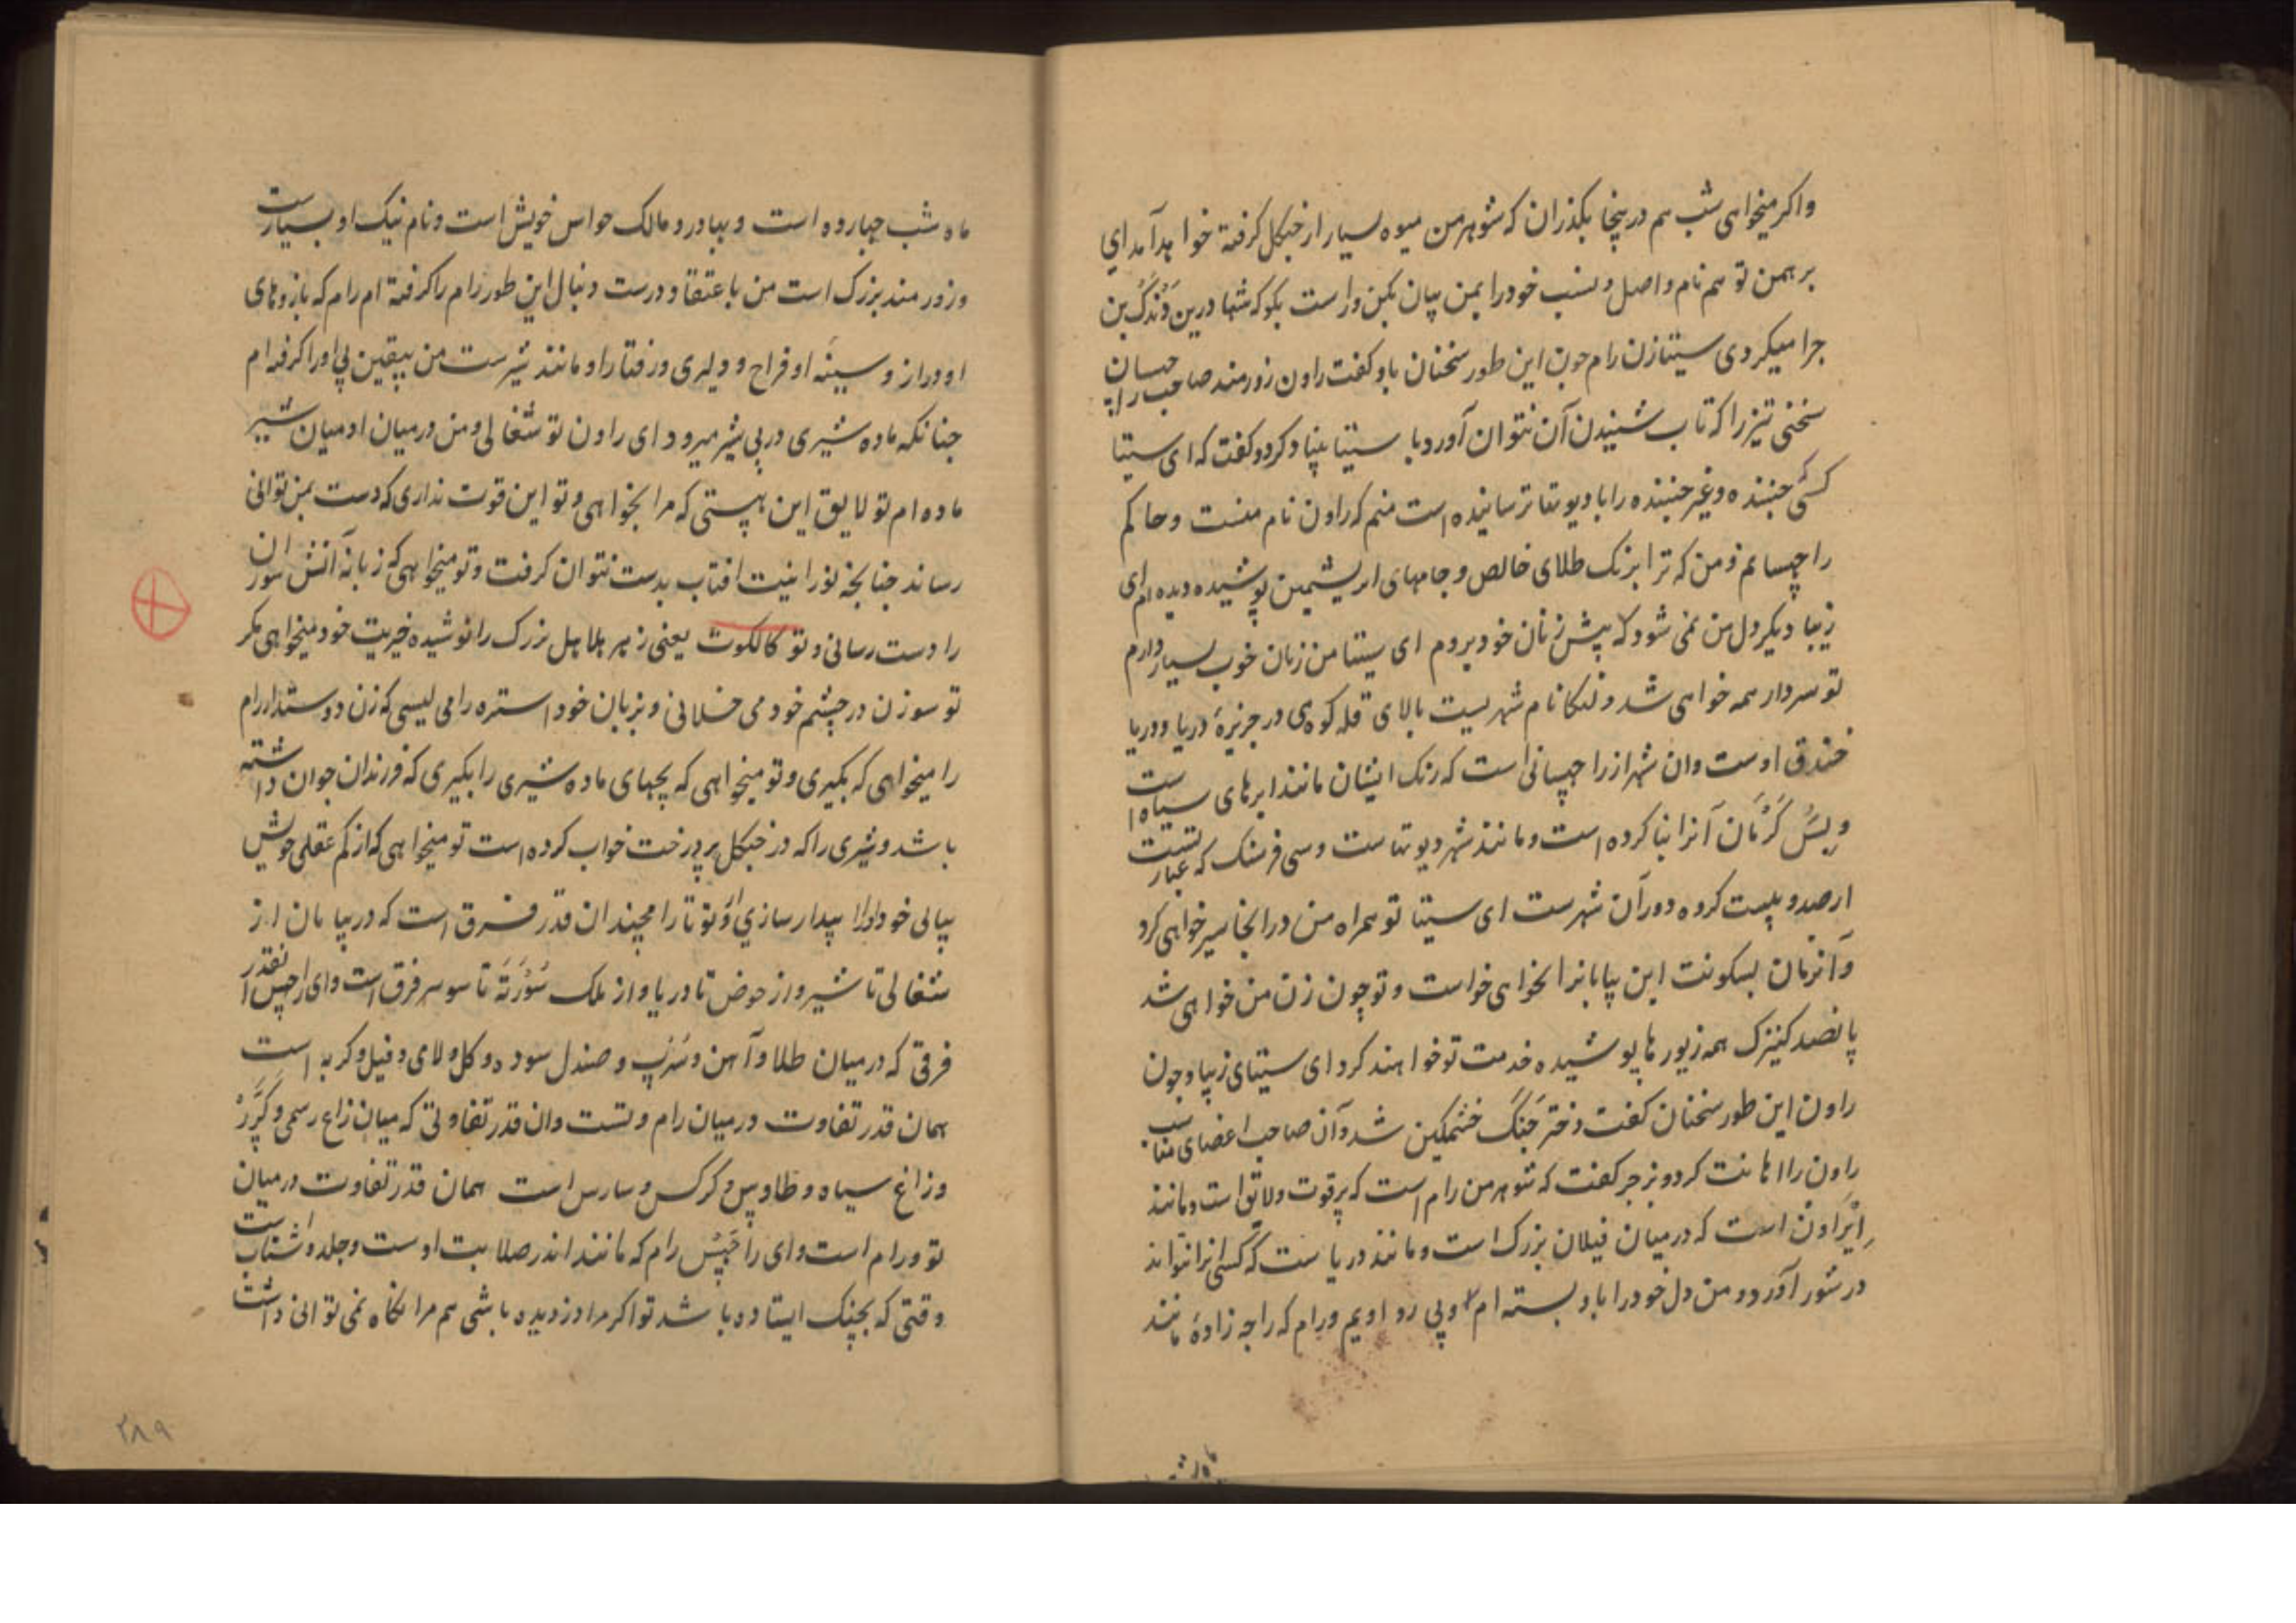 واکر میخواهی شب هم درینجا بکذران که شوهر من میوه بسیار از جنکل کرفته خواهد آمد ای
برهمن تو هم نام و اصل و نسب خود را بمن بیان بکن و راست بکو که شما درین دَندَک بن
چرا میکردی سیتا زن رام چون این طور سخنان باو کفت راون زورمند صاحب راچهسان
سخنی تیز را که تاب شنیدن آن نتوان آورد با سیتا بنیاد کرد و کفت که ای سیتا
کسی جنبنده و غیر جنبنده را با دیوتها ترسانیده است منم که راون نام منست و حاکم
راچهسانم و من که ترا برنک طلای خالص و جامهای ابریشمین پوشیده دیده ام ای
زیبا دیکر دل من نمی شود که پیش زنان خود بروم ای سیتا من زنان خوب بسیار دارم
تو سردار همه خواهی شد و لنکا نام شهریست بالای قله کوهی در جزیرهٔ دریا و دریا
خندق اوست و ان شهر از راچهسانی است که رنک ایشان مانند ابرهای سیاه است
و بِسُکَرْمَان آنرا بنا کرده است و مانند شهر دیوتهاست و سی فرسنک که عبارتست
از صد و بیست کروه دور آن شهرست ای سیتا تو همراه من در انجا سیر خواهی کرد
و آنزمان بسکونت این بیابانرا نخواهی خواست و تو چون زن من خواهی شد
پانصد کنیزک همه زیورها پوشیده خدمت تو خواهند کرد ای سیتای زیبا و چون
راون این طور سخنان کفت دختر جَنَکْ خشمکین شد و آن صاحب اعضای مناسب
راون را اهانت کرد و بزجر کفت که شوهر من رام است که پر قوت و لایق است و مانند
اِیْرَاوَتْ است که در میان فیلان بزرک است و مانند دریاست که کسی انرا نتواند
در شور آورد و من دل خود را باو بسته ام و پی رو اویم و رام که راجه زادهٔ مانند
ماه شب
ماه شب چهارده است و بهادر و مالک حواس خویش است و نام نیک او بسیارست
و زورمند بزرک است من باعتقاد درست دنبال این طور رام را کرفته ام رام که بازوهای
او دراز و سینهٔ او فراخ و دلیری و رفتار او مانند شیرست من بیقین پی او را کرفته ام
چنانکه ماده شیری در پی شیر میرود ای راون تو شغالی و من در میان ادمیان شیر
ماده ام تو لایق این نیستی که مرا بخواهی و تو این قوت نداری که دست بمن توانی
رساند چنانچه نورانیت افتاب بدست نتوان کرفت و تو میخواهی که زبانهٔ آتش سوزان
را دست رسانی و تو کالکوت یعنی زهر هلاهل بزرک را نوشیده خیریت خود میخواهی مکر
تو سوزن در چشم خود می خلانی و بزبان خود استره را می لیسی که زن دوستدار رام
را میخواهی که بکیری و تو میخواهی که بچهای ماده شیری را بکیری که فرزندان جوان داشته
باشد و شیری را که در جنکل پر درخت خواب کرده است تو میخواهی که از کم عقلی خویش
بپای خود او را بیدار سازی از تو تا رامچند ان قدر فرق است که در بیابان از
شغالی تا شیر و از حوض تا دریا و از ملک سُوْرَتَهْ تا سوسر فرق است و ای راچهس انقدر
فرقی که در میان طلا و آهن و سُرَبْ و صندل سوده و کل و لای و فیل و کربه است
همان قدر تفاوت در میان رام و تست و ان قدر تفاوتی که میان زاغ رسمی و کَرُرْ
و زاغ سیاه و طاوس و کرکس و سارس است همان قدر تفاوت در میان
تو و رام است و ای راچْهَسْ رام که مانند اندر صلابت اوست و جلد و شتاب است
وقتی که بجنک ایستاده باشد تو اکر مرا دزدیده باشی هم مرا نکاه نمی توانی داشت
۲۸۹